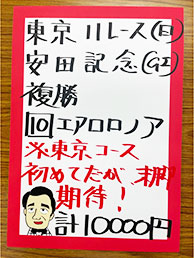 東京11レース(日)
安田記念(GⅠ)
複勝
10 エアロロノア
※東京コース
初めてだが、
期待!
計10000円